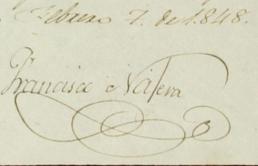 Febrero 7. de 1848.
Francisco Natera